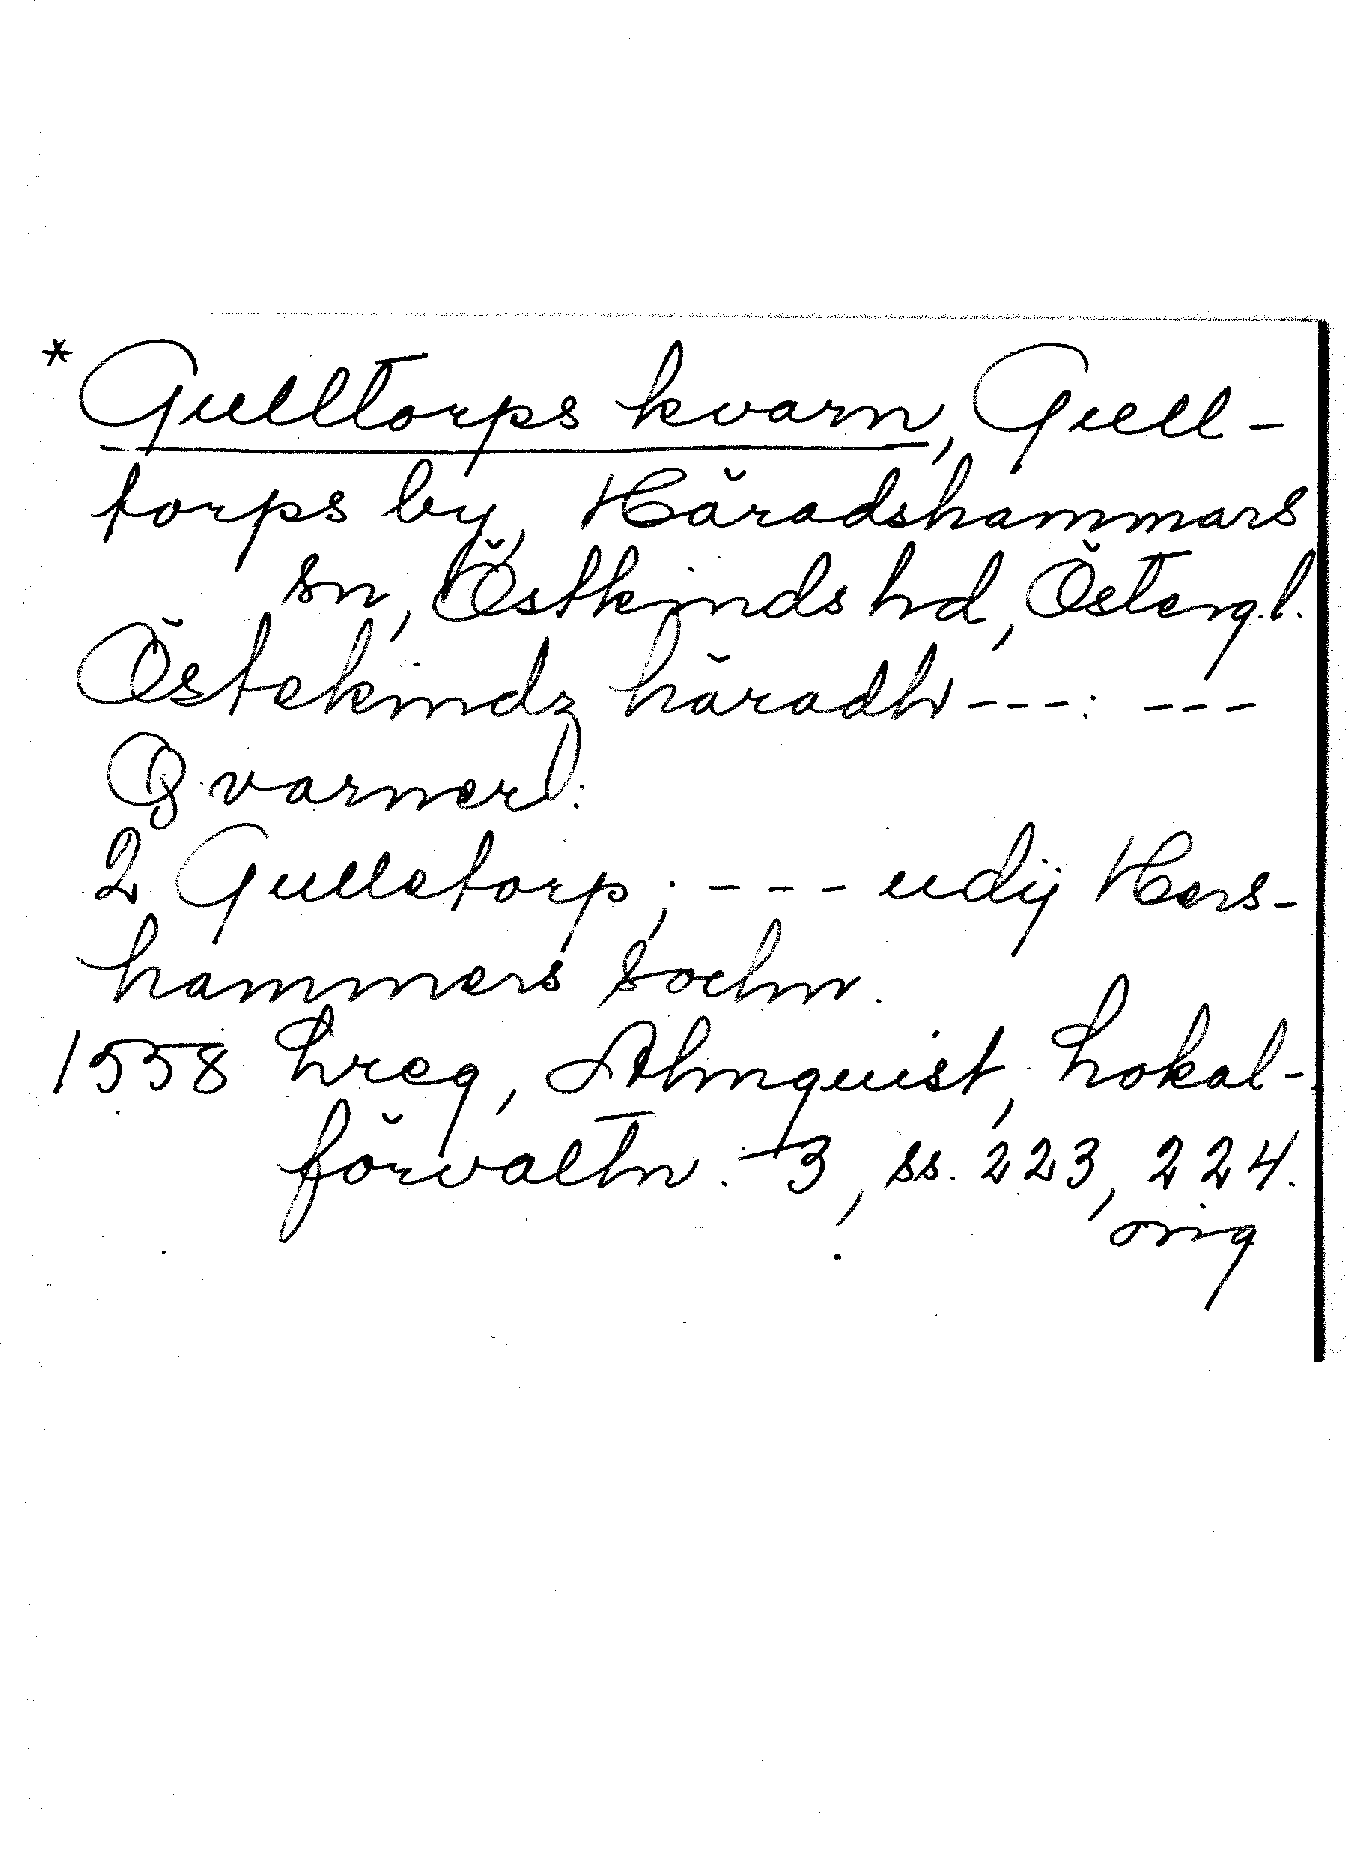 * Gulltorps kvarn, Gull-
torps by, Häradshammars
sn, Östkinds hd, Östergl.
Östekindz häradh ---: ---
Qvarner:
2 Gulletorp; --- udij Hers-
hammers sochn.
1558 hreg, Almquist, Lokal-
förvaltn. 3, ss. 223, 224.
orig